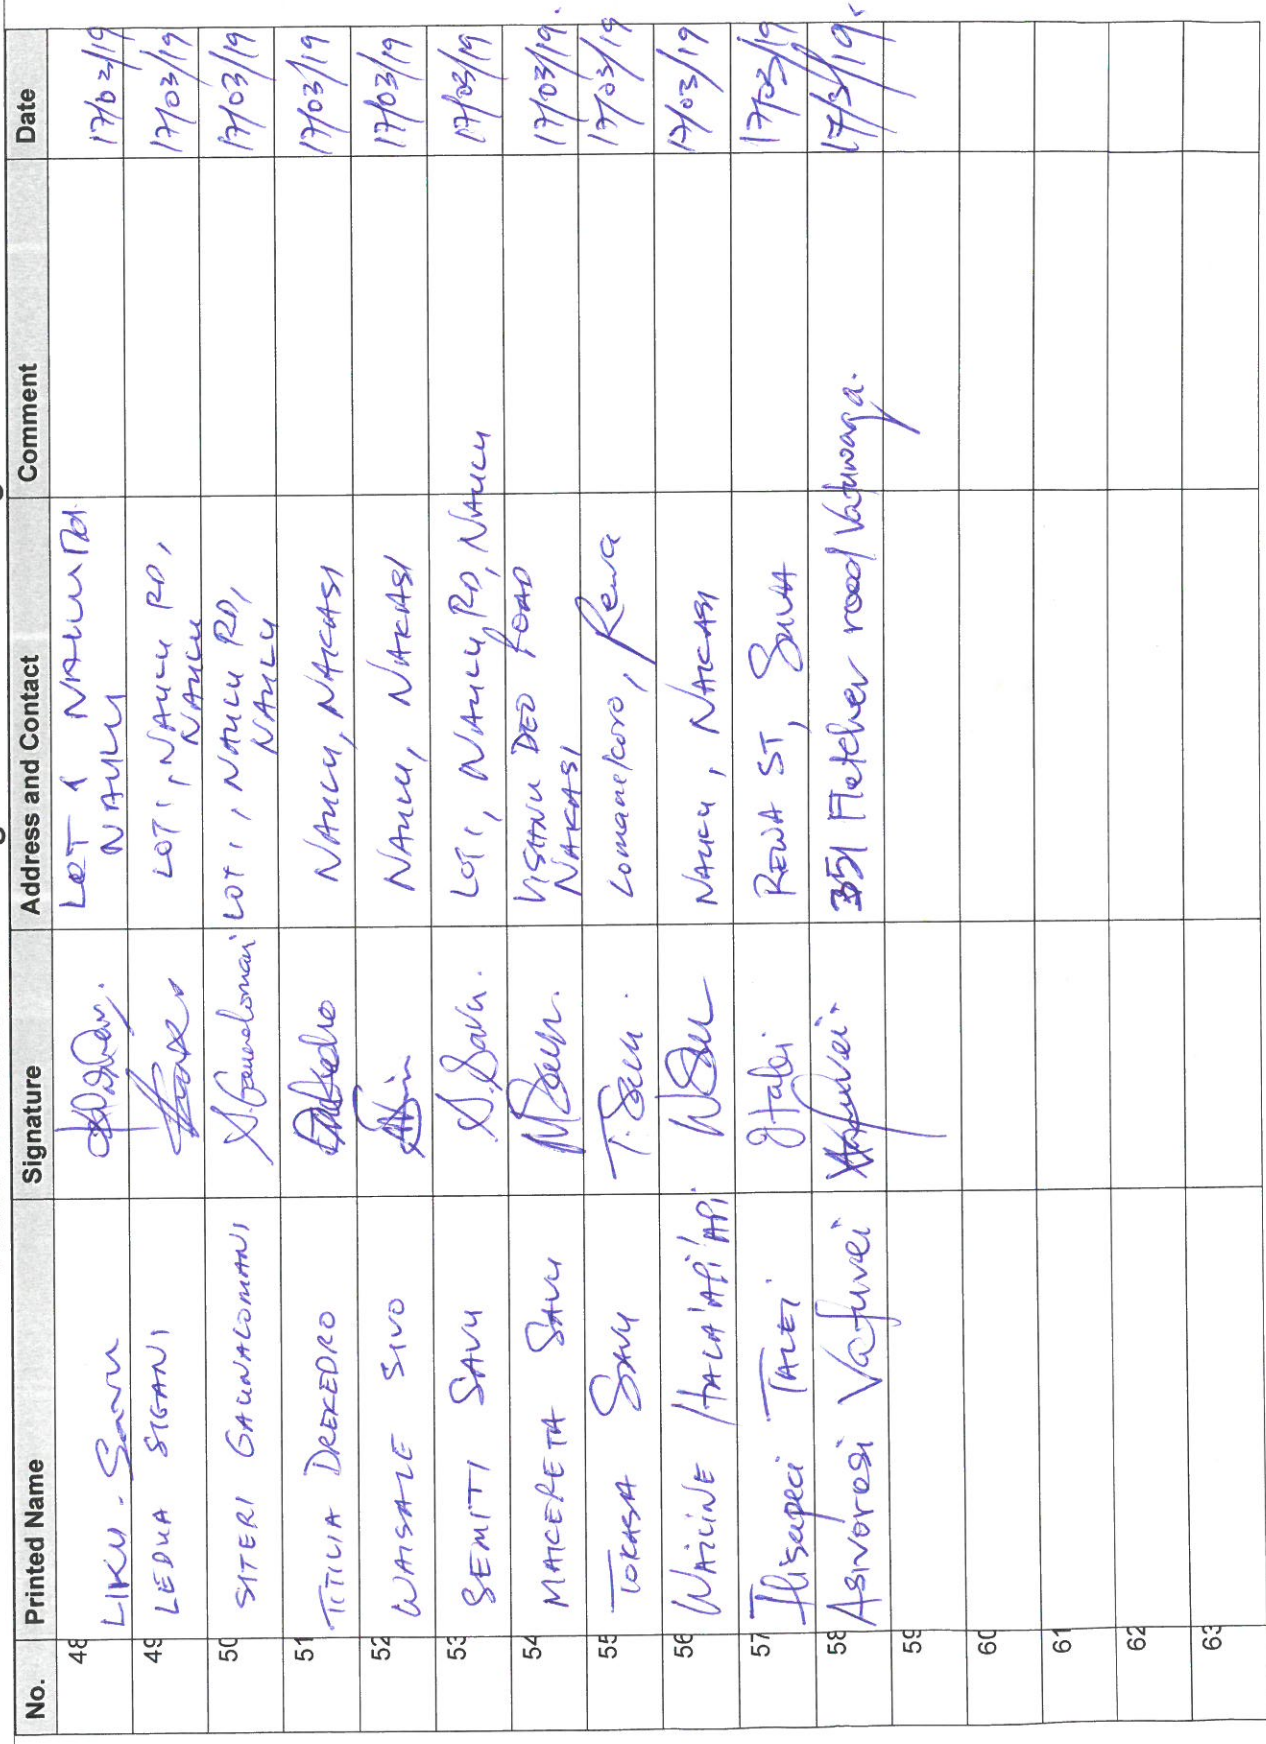 No. Printed Name Signature Address and Contact Comment Date
48 LIKU. Savu LOT 1 NAULU Rd. 17/03/19
NAULU
49 LEDUA SIGANI LOT 1, NAULU RD, 17/03/19
NAULU
50 SITERI GAUNALOMANI S. Gaunalomani LOT 1, NAULU RD, 17/03/19
NAULU
51 TITILIA DREKEDRO NAULU, NAKASI 17/03/19
52 WAISALE SIVO NAULU, NAKASI 17/03/19
53 SEMITI SAVU S. Savu. LOT 1, NAULU RD, NAULU 17/03/19
54 MAKERETA SAVU MSavu. VISHNU DEO ROAD 17/03/19.
NAKASI
55 TOKASA SAVU T. Savu. Lomanikoro, Rewa 17/03/19
56 WAILINE HALA'API'API WSavu NAULU, NAKASI 17/03/19
57 Ilisapeci TALEI Italei REWA ST, SUVA 17/03/19
58 Asivorosi Vafuvei 351 Fletcher road Vatuwaqa. 17/3/19
59
60
61
62
63